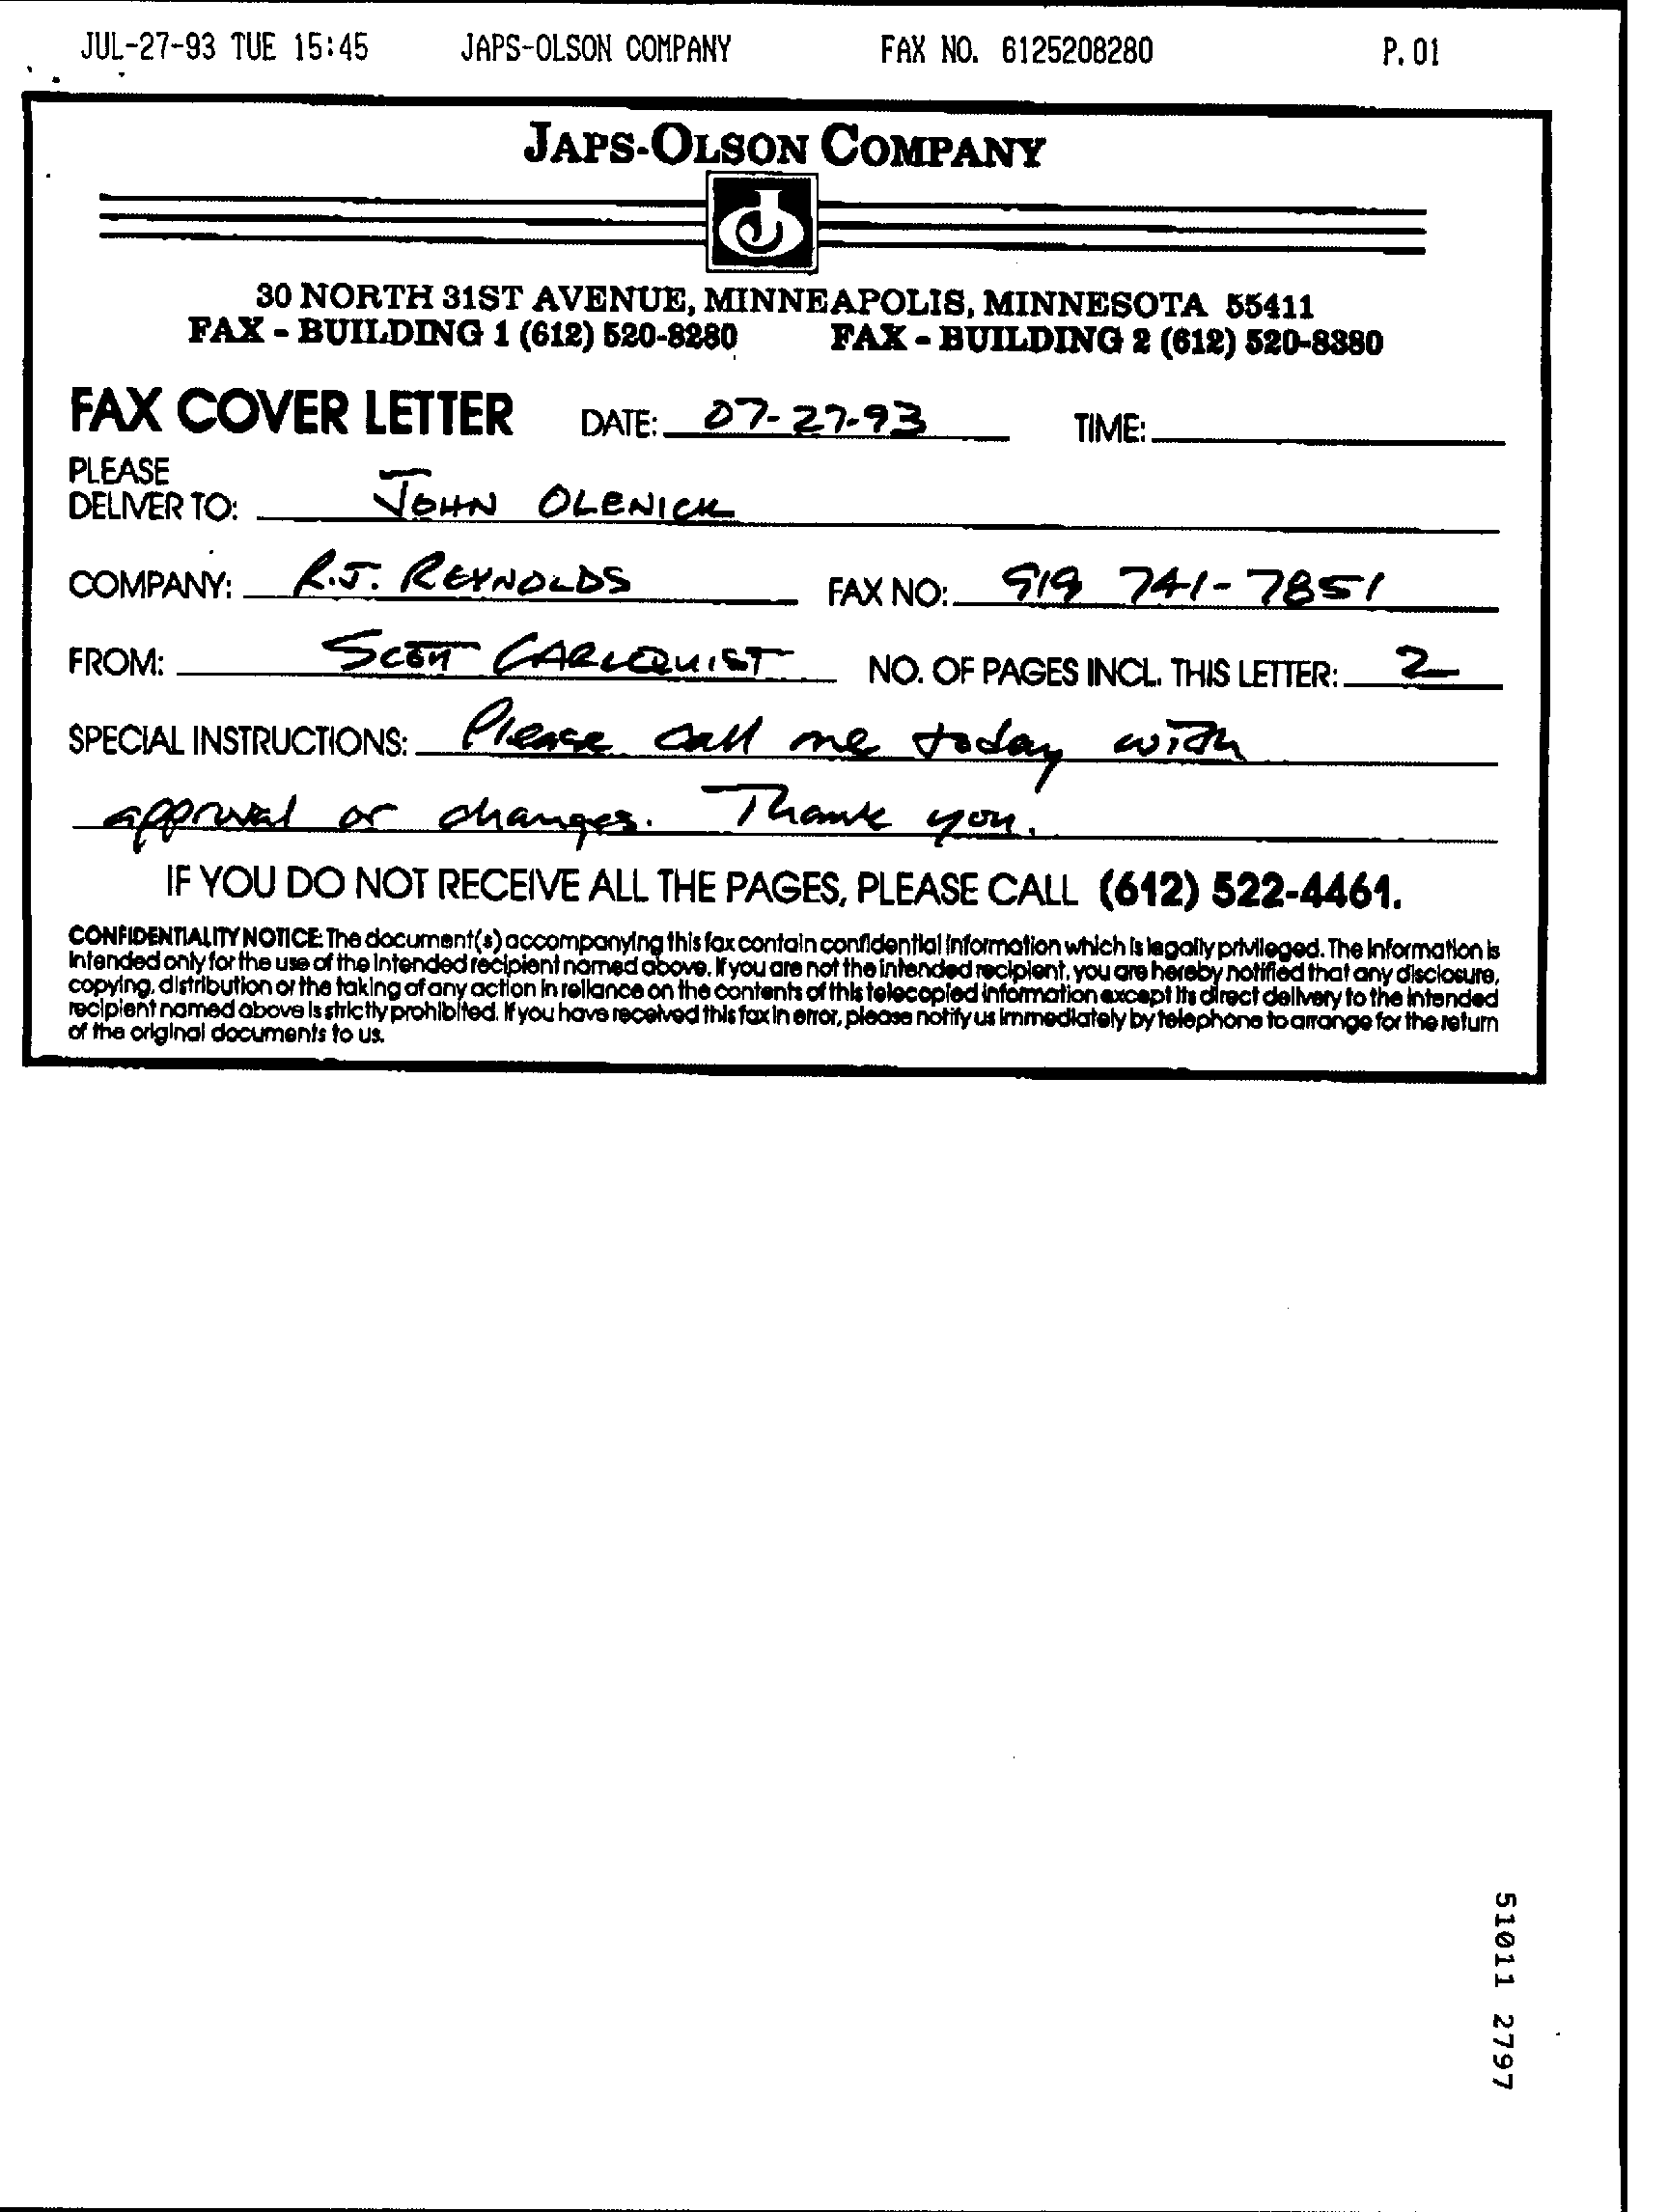 JUL-27-93 TUE 15:45 JAPS-OLSON COMPANY FAX NO. 6125208280 P.01
JAPS-OLSON COMPANY
30 NORTH 31ST AVENUE, MINNEAPOLIS, MINNESOTA 55411
FAX - BUILDING 1 (612) 520-8280 FAX - BUILDING 2 (612) 520-8380
FAX COVER LETTER DATE: 07-27-93 TIME:
PLEASE
DELIVER TO: JOHN OLENICK
COMPANY: R.J. REYNOLDS FAX NO: 919 741-7851
FROM: SCOTT CARLQUIST NO. OF PAGES INCL. THIS LETTER: 2
SPECIAL INSTRUCTIONS: Please call me today with
approval or changes. Thank you.
IF YOU DO NOT RECEIVE ALL THE PAGES, PLEASE CALL (612) 522-4461.
CONFIDENTIALITY NOTICE: The document(s) accompanying this fax contain confidential information which is legally privileged. The information is
intended only for the use of the intended recipient named above. If you are not the intended recipient, you are hereby notified that any disclosure,
copying, distribution or the taking of any action in reliance on the contents of this telecopied information except its direct delivery to the intended
recipient named above is strictly prohibited. If you have received this fax in error, please notify us immediately by telephone to arrange for the return
of the original documents to us.
51011 2797